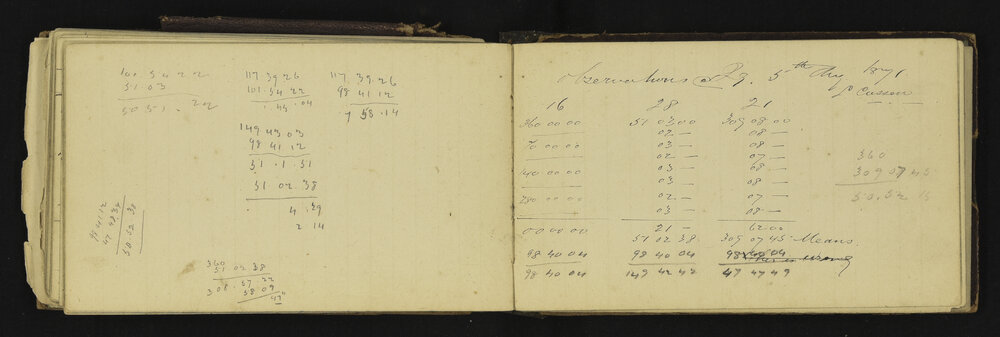 101 54 22
51 03
50 51 . 22
117 39 26
101 54 22
. 45 . 04
117 39 . 26
98 41 12
. 58 . 14
149 43 03
98 41 12
51 . 1 . 51
51 02 38
4 . 29
2 14
98 41 12
47 48 38
50 52 38
360
51 02 38
308 . 57 . 22
58 09
47
Observations 5th 1871.
Casson
16 28 21
360 00 00 51 03 00 309 08 00
02 — 08 —
70 00 00 03 — 08 —
02 — 07 —
140 00 00 03 — 08 —
03 — 08 —
280 00 00 02 — 07 —
03 — 08 —
00 00 00 21 — 62 00
51 02 38. 309 07 45 Means.
98 40 04 98 40 04 98 40 04
98 40 04 149 42 42 47 47 49
360
309 07 45
50.52 15